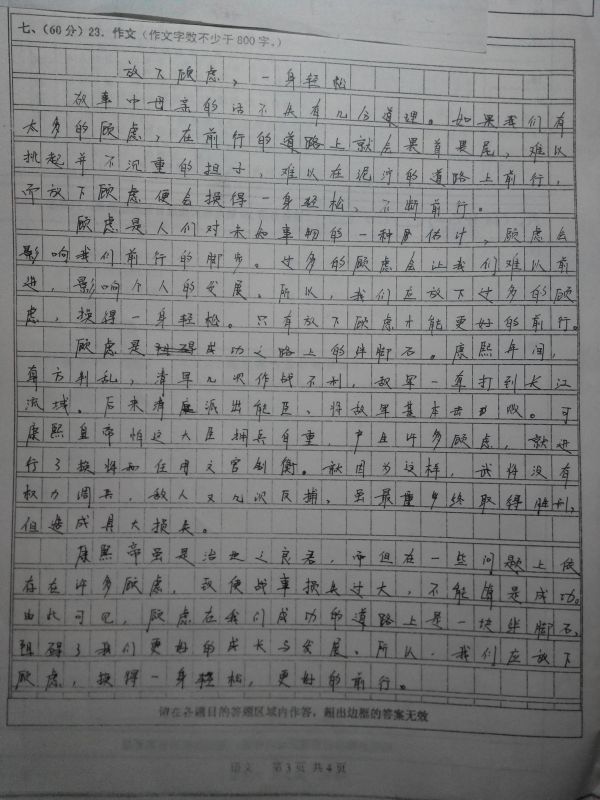 七、(60分) 23. 作文(作文字数不少于800字。)
放下顾虑，一身轻松
故事中母亲的话不失有几分道理。如果我们有
太多的顾虑，在前行的道路上就会畏首畏尾，难以
挑起并不沉重的担子，难以在泥泞的道路上前行，
而放下顾虑便会换得一身轻松，不断前行。
顾虑是人们对未知事物的一种估计，顾虑会
影响我们前行的脚步。过多的顾虑会让我们难以前
进，影响个人的发展。所以，我们应放下过多的顾
虑，换得一身轻松。只有放下顾虑才能更好的前行。
顾虑是成功之路上的绊脚石。康熙年间，
南方判乱，清军几次作战不利，敌军一直打到长江
流域。后来清廷派出能臣，将敌军基本击败。可
康熙皇帝怕这大臣拥兵自重，产生许多顾虑，就进
行了换将和任用文官制衡。就因为这样，武将没有
权力调兵，敌人又几次反捕，虽最终取得胜利，
但造成具大损失。
康熙帝虽是治世之良君，而但在一些问题上依
存在许多顾虑，致使战事损失过大，不能算是成功。
由此可见，顾虑在我们成功的道路上是一块绊脚石，
阻碍了我们更好的成长与发展。所以，我们应放下
顾虑，换得一身轻松，更好的前行。
请在各题目的答题区域内作答，超出边框的答案无效
语文 第3页 共4页